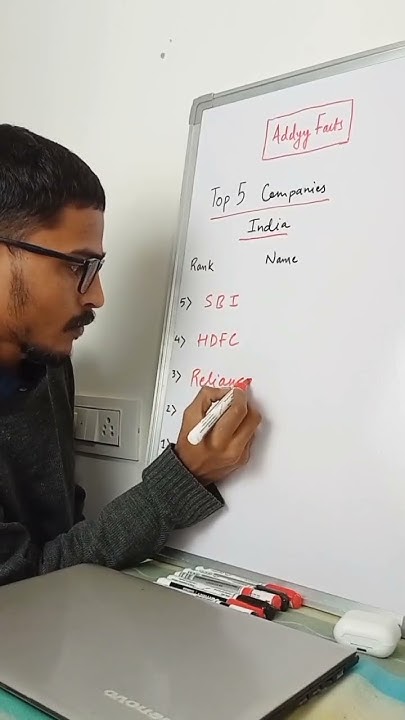 Addyy Facts
Top 5 Companies
India
Rank Name
5> SBI
4> HDFC
3> Reliance
2>
1>
lenovo